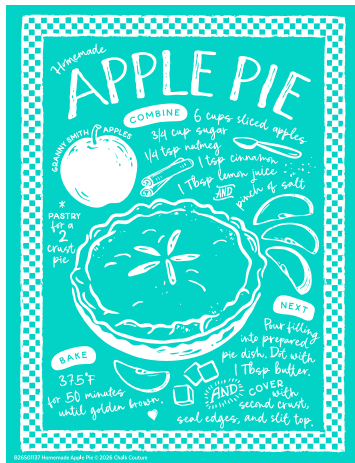 Homemade
APPLE PIE
COMBINE
6 cups sliced apples
3/4 cup sugar
1/4 tsp nutmeg
1 tsp cinnamon
1 Tbsp lemon juice
AND
pinch of salt
GRANNY SMITH APPLES
*
PASTRY
for a
2
crust
pie
NEXT
Pour filling
into prepared
pie dish. Dot with
1 Tbsp butter.
AND COVER with
second crust,
seal edges, and slit top.
BAKE
375°F
for 50 minutes
until golden brown.
B26501137 Homemade Apple Pie © 2026 Chalk Couture